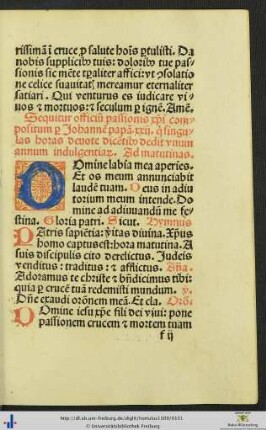 rissimā ī cruce ꝓ salute hoīs ꝑtulisti. Da
nobis supplicib⁹ tuis: dolorib⁹ tue pas-
sionis sic mēte trꝭaliter affici: vt ꝯsolatio
ne celice suauitatꝭ mereamur eternaliter
satiari. Qui venturus es iudicare vi-
uos ⁊ mortuos: ⁊ seculum ꝑ ignē. Amē.
Sequitur officiū passionis xp̄i com-
positum ꝑ Johannē papā.xxij. ꝗ singu-
las horas deuote dicētib⁹ dedit vnum
annum indulgentiaꝝ. Ad matutinas.
Domine labia mea aperies.
Et os meum annunciabit
laudē tuam. Deus in adiu
torium meum intende. Do
mine ad adiuuandū me fe-
stina. Gloria patri. Sicut. Hymnus
Patris sapiētia: v̄itas diuina. Xp̄us
homo captus est: hora matutina. A
suis discipulis cito derelictus. Judeis
venditus: traditus: ⁊ afflictus. Añа.
Adoramus te christe ⁊ bn̄dicimus tibi:
quia ꝑ crucē tuā redemisti mundum. ℣.
Dn̄e exaudi orōnem meā. Et cla. Orō.
Domine iesu xp̄e fili dei viui: pone
passionem crucem ⁊ mortem tuam
f ij
© Universitätsbibliothek Freiburg